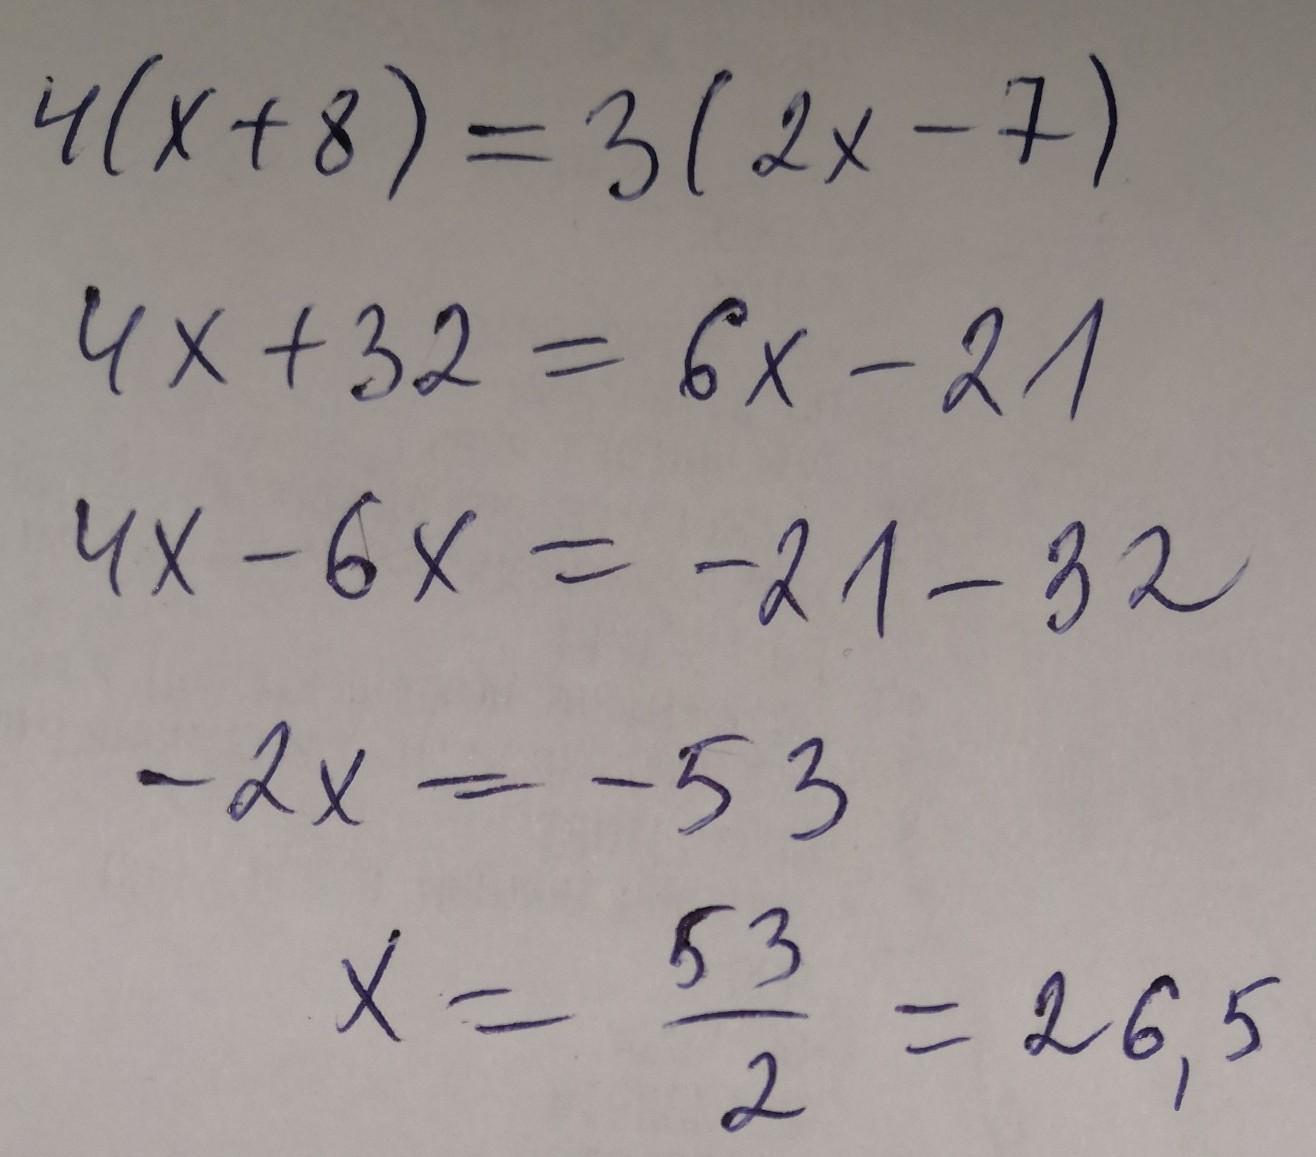 4(x+8)=3(2x-7)
4x+32=6x-21
4x-6x=-21-32
-2x=-53
x=53/2=26,5